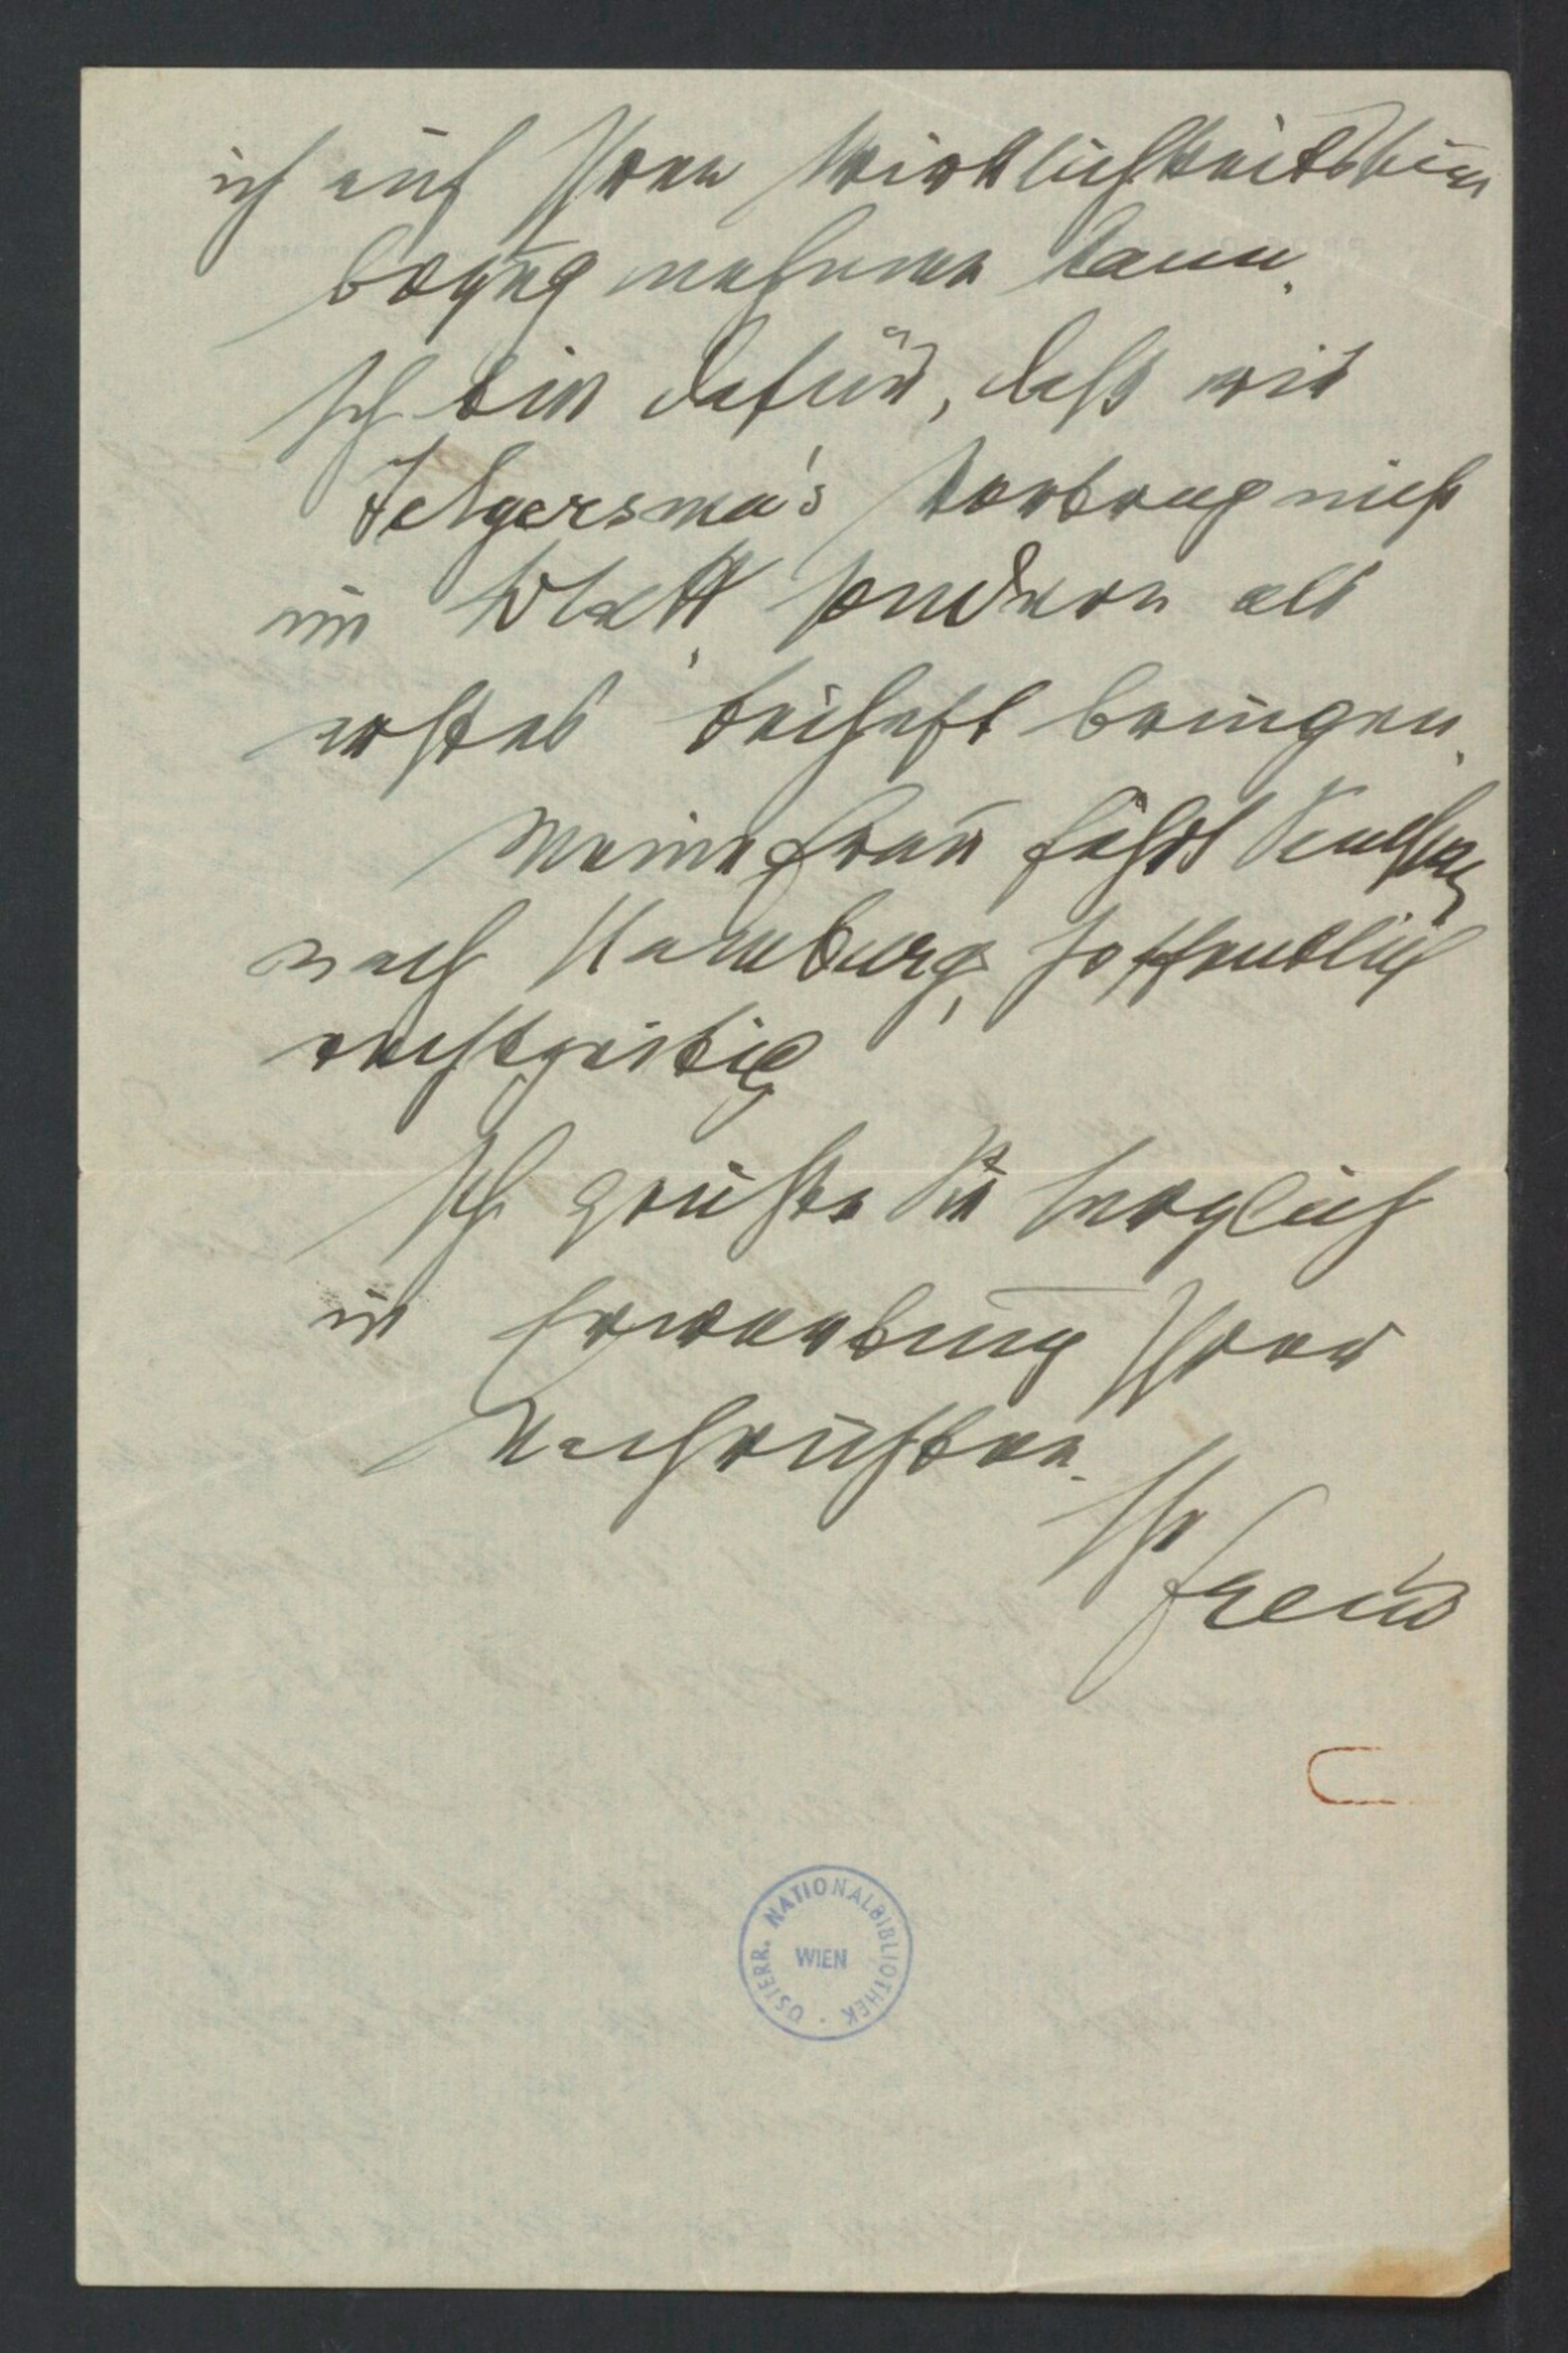 ich auf Ihren Wirklichkeitssinn
bezug nehmen kann.
Ich bin dafür, daß wir
Jelgersma's Vortrag nicht
im Blatt, sondern als
erstes Beiheft bringen.
Meine Frau fährt
nach Hamburg, hoffentlich
rechtzeitig
Ich grüße Sie herzlich
in Erwartung Ihrer
Nachrichten.
Ihr
Freud
ÖSTERR. NATIONALBIBLIOTHEK · WIEN